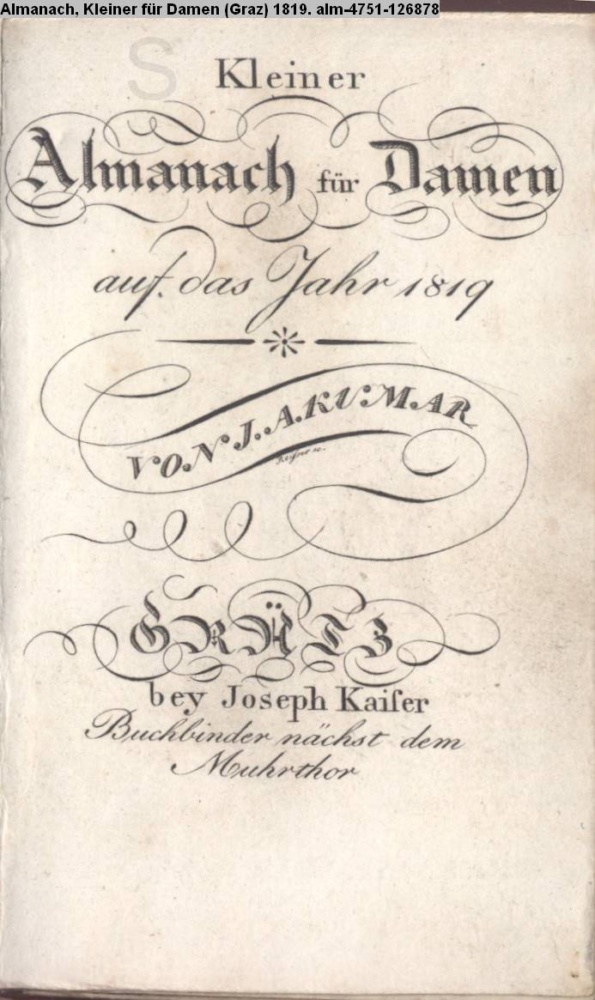 Almanach, Kleiner für Damen (Graz) 1819. alm-4751-126878
S
Kleiner
Almanach für Damen
auf. das Jahr 1819
VON J. A. KUMAR
GRÄTZ
bey Joseph Kaiſer
Buchbinder nächst dem
Muhrthor